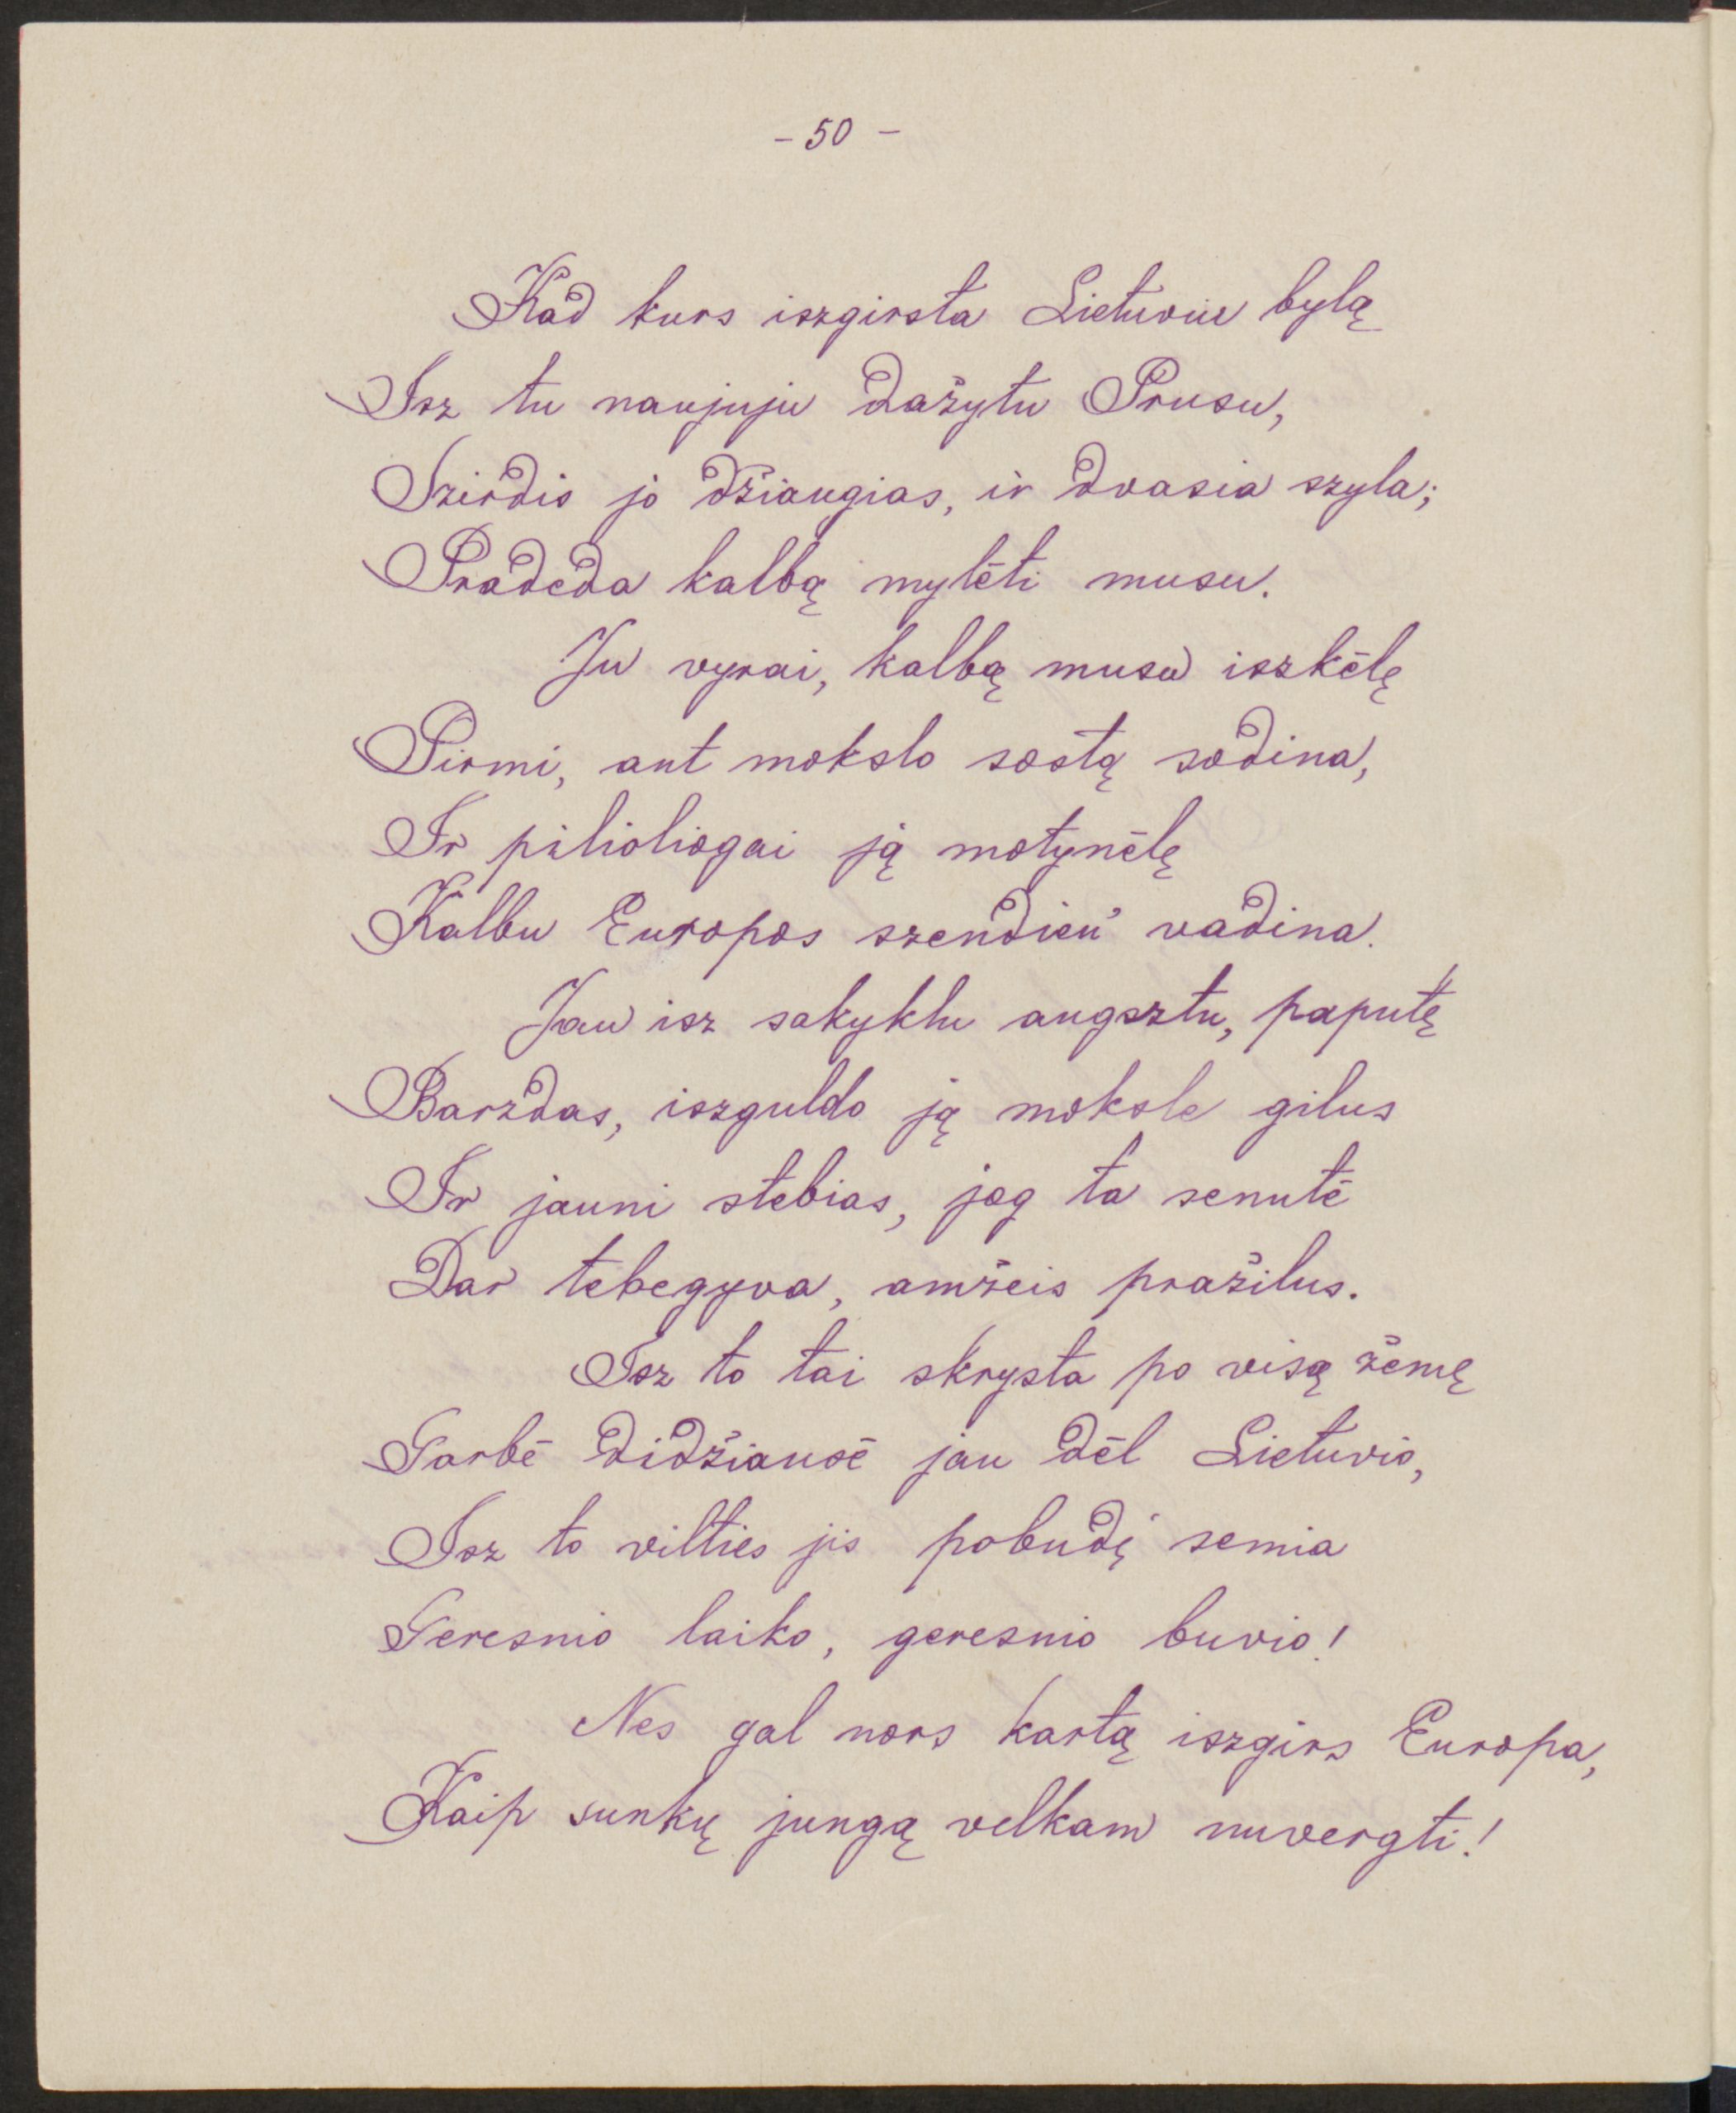 - 50 -
Kad kurs iszgirsta Lietuviu bylą
Isz tu naujuju dažytu Prusu,
Szirdis jo džiaugias, ir dvasia szyla;
Pradeda kalbą mylėti musu.
Ju vyrai, kalbą musu iszkėlę
Pirmi, ant mokslo sostą sodina,
Ir pilioliogai ją motynėlę
Kalbu Europos szendien' vadina.
Jau isz sakyklu augsztu, paputę
Barzdas, iszguldo ją moksle gilus
Ir jauni stebias, jog ta senutė
Dar tebegyva, amžeis pražilus.
Isz to tai skrysta po visą žemę
Garbė didžiausė jau dėl Lietuvio,
Isz to vilties jis pobudį semia
Geresnio laiko, geresnio buvio!
Nes gal nors kartą iszgirs Europa,
Kaip sunkų jungą velkam nuvergti!